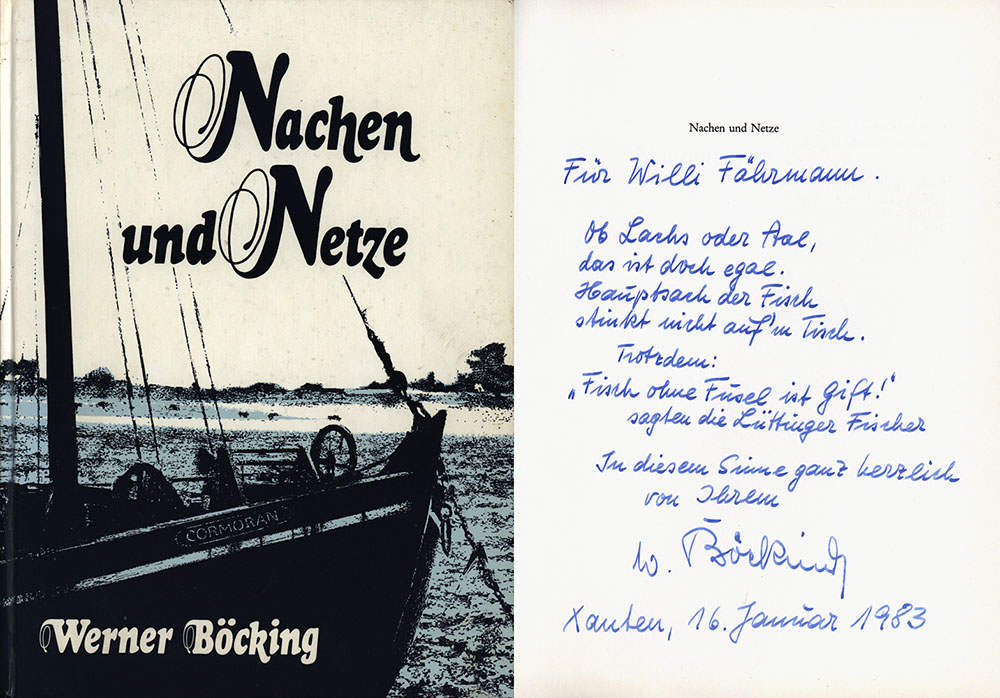 Nachen
und Netze
CORMORAN
Werner Böcking
Nachen und Netze
Für Willi Fährmann.
Ob Lachs oder Aal,
das ist doch egal.
Hauptsach der Fisch
stinkt nicht auf'm Tisch.
Trotzdem:
„Fisch ohne Fusel ist Gift!"
sagten die Lüttinger Fischer
In diesem Sinne ganz herzlich
von Ihrem
W. Böcking
Xanten, 16. Januar 1983